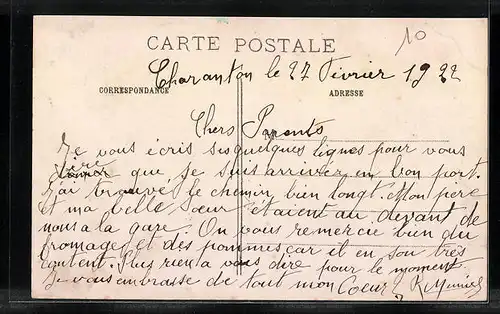 10
CARTE POSTALE
Charanton le 27 Février 1922
CORRESPONDANCE
ADRESSE
Chers Parents
Je vous écris ses quelques lignes pour vous
dire
que je suis arriver en bon port.
J'ai trouvé le chemin bien longt. Mon père
et ma belle sœur étaient au devant de
nous a la gare. On vous remercie bien du
fromage et des pommes car il en son très
content. Plus rien a vous dire pour le moment
Je vous embrasse de tout mon Coeur